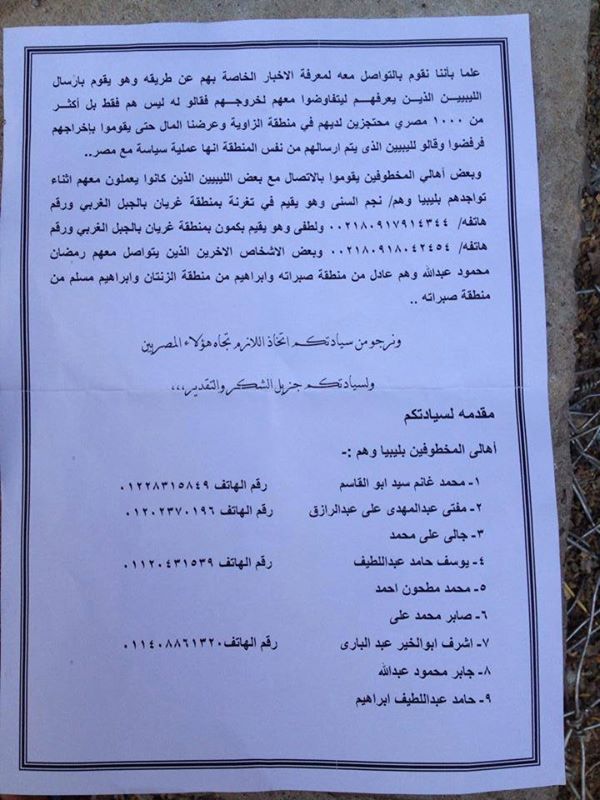 علما بأننا نقوم بالتواصل معه لمعرفة الاخبار الخاصة بهم عن طريقه وهو يقوم بارسال
الليبيين الذين يعرفهم ليتفاوضوا معهم لخروجهم فقالو له ليس هم فقط بل أكثر
من ١٠٠٠ مصري محتجزين لديهم في منطقة الزاوية وعرضنا المال حتى يقوموا بإخراجهم
فرفضوا وقالو لليبيين الذى يتم ارسالهم من نفس المنطقة انها عملية سياسة مع مصر..
وبعض أهالي المخطوفين يقوموا بالاتصال مع بعض الليبيين الذين كانوا يعملون معهم اثناء
تواجدهم بليبيا وهم/ نجم السنى وهو يقيم في تغرنة بمنطقة غريان بالجبل الغربي ورقم
هاتفه/ ٠٠٢١٨٠٩١٧٩١٤٣٤٤ ولطفى وهو يقيم بكمون بمنطقة غريان بالجبل الغربي ورقم
هاتفه/ ٠٠٢١٨٠٩١٨٠٤٢٤٥٤ وبعض الاشخاص الاخرين الذين يتواصل معهم رمضان
محمود عبدالله وهم عادل من منطقة صبراته وابراهيم من منطقة الزنتان وابراهيم مسلم من
منطقة صبراته ..
ونرجو من سيادتكم اتخاذ اللازم تجاه هؤلاء المصريين
ولسيادتكم جزيل الشكر والتقدير،،،
مقدمه لسيادتكم
أهالى المخطوفين بليبيا وهم :-
١- محمد غانم سيد ابو القاسم رقم الهاتف ٠١٢٢٨٣١٥٨٤٩
٢- مفتى عبدالمهدى على عبدالرازق رقم الهاتف ٠١٢٠٢٣٧٠١٩٦
٣- جالى على محمد
٤- يوسف حامد عبداللطيف رقم الهاتف ٠١١٢٠٤٣١٥٣٩
٥- محمد مطحون احمد
٦- صابر محمد على
٧- اشرف ابوالخير عبد البارى رقم الهاتف ٠١١٤٠٨٨٦١٣٢٠
٨- جابر محمود عبدالله
٩- حامد عبداللطيف ابراهيم